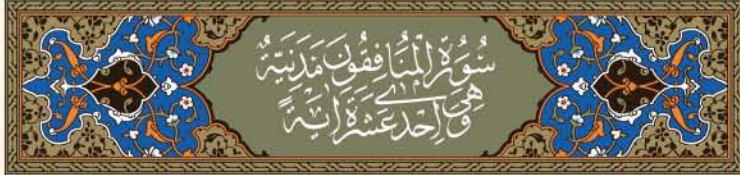 سُورَةُ الْمُنَافِقُونَ مَدَنِيَّةٌ
وَهِىَ اِحْدٰى عَشْرَةَ اٰيَةً